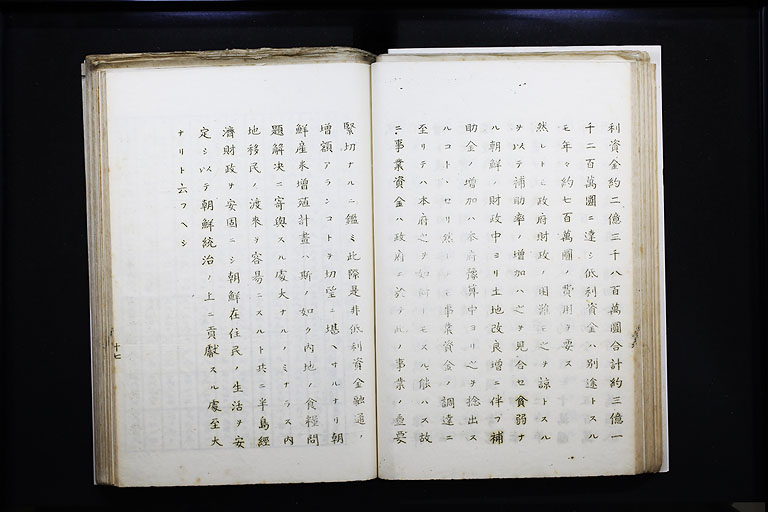 利資金約二億三千八百萬圓合計約三億一
千二百萬圓ニ達シ低利資金ハ別途トスル
モ年々約七百萬圓ノ費用ヲ要ス
然レトモ政府財政ノ困難モ之ヲ諒トスル
ヲ以テ補助率ノ増加ハ之ヲ見合セ貧弱ナ
ル朝鮮ノ財政中ヨリ土地改良増ニ伴フ補
助金ノ増加ハ本府豫算中ヨリ之ヲ捻出ス
ルコトヽセリ然レトモ事業資金ノ調達ニ
至リテハ本府之ヲ如何トモスル能ハス故
ニ事業資金ハ政府ニ於テ此ノ事業ノ重要
緊切ナルニ鑑ミ此際是非低利資金融通ノ
増額アランコトヲ切望ニ堪ヘサルナリ朝
鮮産米増殖計畫ハ斯ノ如ク内地ノ食糧問
題解决ニ寄與スル處大ナルノミナラス内
地移民ノ渡来ヲ容易ニスルト共ニ半島經
濟財政ヲ安固ニシ朝鮮在住民ノ生活ヲ安
定シ以テ朝鮮統治ノ上ニ貢獻スル處至大
ナリト云フヘシ
十七